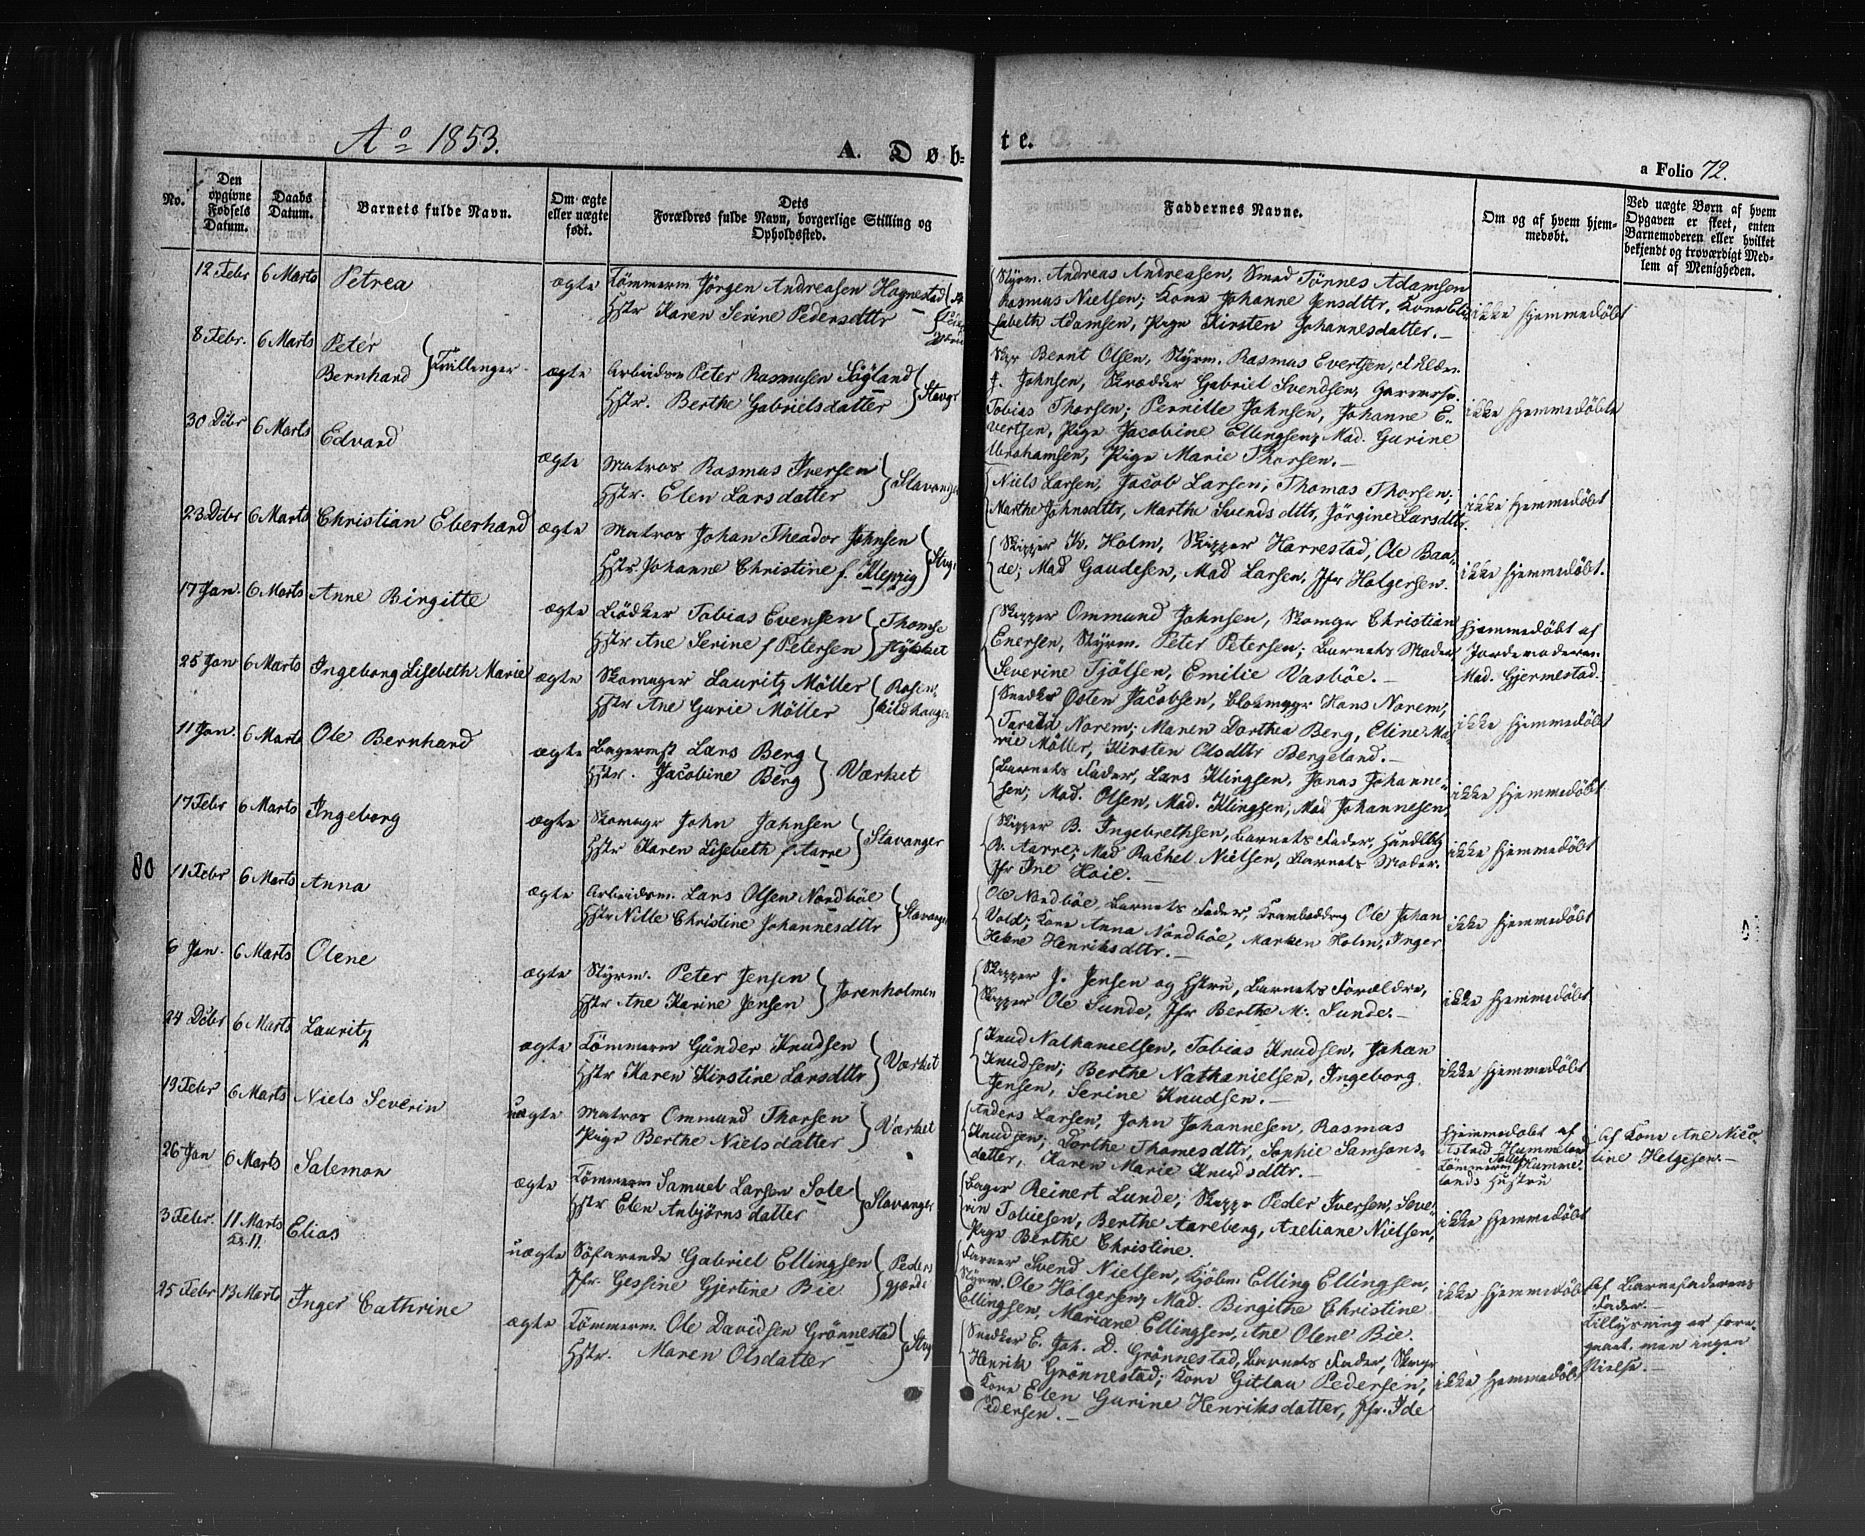 Ao 1853.
A. Døb-
te.
a Folio 72.
No.
Den opgivne Fødsels Datum.
Daabs Datum.
Barnets fulde Navn.
Om ægte eller uægte født.
Dets Forældres fulde Navn, borgerlige Stilling og Opholdssted.
Faddernes Navne.
Om og af hvem hjemmedøbt.
Ved uægte Børn af hvem Opgaven er skeet, enten Barnemoderen eller hvilket bekjendt og troværdigt Medlem af Menigheden.
12 Febr 6 Marts Petrea ægte
Tømmerm Jørgen Andreasen Hognestad
Hstr Karen Serine Pedersdttr
Styrm. Andreas Andreasen, Smed Tönnes Adamsen
Rasmus Nielsen; Kone Johanne Jensdttr, Kone Eli-
sabeth Adamsen, Pige Kirsten Johannesdatter.-
ikke hjemmedøbt
8 Febr. 6 Marts Peter
Bernhard } Tvillinger ægte
Arbeidsm Peter Rasmusen Söyland
Hstr. Berthe Gabrielsdatter } Stavgr
Skp Bernt Olsen, Styrm. Rasmus Evertsen,
J. Johnsen, Skrædder Gabriel Svendsen, Garversv.
Tobias Thorsen; Pernille Johnsen, Johanne E-
vertsen, Pige Jacobine Ellingsen, Mad. Gurine
Abrahamsen, Pige Marie Thorsen.-
ikke hjemmedøbte
30 Dcbr 6 Marts Edvard ægte
Matros Rasmus Iversen
Hstr. Elen Larsdatter } Stavanger
Niels Larsen, Jacob Larsen, Thomas Thorsen;
Marthe Johnsdttr, Marthe Svendsdttr, Jörgine Larsdttr.
ikke hjemmedøbt
23 Dcbr 6 Marts Christian Eberhard ægte
Matros Johan Theodor Johnsen
Hstr Johanne Christine f. Kleppig } Stvgr
Skipper K. Holm, Skipper Harrestad, Ole Baa-
de; Mad Gaudesen, Mad Larsen, Jfr Holgersen.
ikke hjemmedøbt.
17 Jan. 6 Marts Anne Birgitte ægte
Bødker Tobias Evensen
Hstr Ane Serine f Petersen } Thomse
stykket
Skipper Ommund Johnsen, Skomgr Christian
Enersen, Styrm. Peter Petersen; Barnets Moder,
Severine Tjölsen, Emilie Vasböe.-
hjemmedøbt af
Jordemoderen
Mad. Gjermestad.
25 Jan 6 Marts Ingeborg Lisebeth Marie ægte
Skomager Lauritz Möller
Hstr Ane Gurie Möller } Rosen-
kildhaugen
Snedker Östen Jacobsen, Blokmagr Hans Norem,
Tarald Norem; Maren Dorthea Berg, Eline Ma-
rie Möller, Kirsten Olsdttr Bergeland.-
ikke hjemmedøbt
11 Jan. 6 Marts Ole Bernhard ægte
Bagermst Lars Berg
Hstr. Jacobine Berg } Værket
Barnets Fader, Lars Klingsen, Jonas Johanne-
sen; Mad. Olsen, Mad. Klingsen, Mad Johannesen,
ikke hjemmedøbt
17 Febr 6 Marts Ingeborg ægte
Skomgr John Johnsen
Hstr Karen Lisebeth f Aarre } Stavanger
Skipper B. Ingebrethsen, Barnets Fader, Handlbtj
B. Aarre; Mad Rachel Nielsen, Barnets Moder.
Jfr Ine Hoie.-
ikke hjemmedøbt
80
11 Febr 6 Marts Anna ægte
Arbeidsm. Lars Olsen Nordböe
Hstr Nille Christine Johannesdttr } Stavanger
Ole Nordböe, Barnets Fader, Kramboddreng Ole Johan
Vold; Kone Anna Nordböe, Marken Holm, Inger
Helene Henriksdttr.-
ikke hjemmedøbt
6 Jan. 6 Marts Olene ægte
Styrm. Peter Jensen
Hstr Ane Karine Jensen } Jorenholmen
Skipper J. Jensen og Hstru, Barnets Forældre,
Skipper Ole Sunde, Jfr Berthe M. Sunde.-
ikke hjemmedøbt
24 Dcbr 6 Marts Lauritz ægte
Tømmerm Gunder Knudsen
Hstr Karen Kirstine Larsdttr } Værket
Knud Nathanielsen, Tobias Knudsen, Johan
Knudsen; Berthe Nathanielsen, Ingeborg
Jensen, Serine Knudsen.-
ikke hjemmedøbt
19 Febr 6 Marts Niels Severin uægte
Matros Ommund Thorsen
Pige Berthe Nielsdatter } Værket
Anders Larsen, John Johannesen, Rasmus
Knudsen; Dorthe Thomesdttr, Sophie Samsons-
datter, Karen Marie Knudsdttr.-
hjemmedøbt af
Astrid
Tømmerm
lands Hustru
Af Kone Ane Nico-
line Helgesen.-
26 Jan 6 Marts Salemon ægte
Tømmerm Samuel Larsen Sole
Hstr Elen Anbjörnsdatter } Stavanger
Bager Reinert Lunde, Skippr Peder Iversen, Seve-
rin Tobiesen, Berthe Aareberg, Axeliane Nielsen,
Pige Berthe Christine.
ikke hjemmedøbt
3 Febr. 11 Marts Elias uægte
Söfarende Gabriel Ellingsen
Jfr. Gessine Gjertine Bie } Peders
gjærde
Farver Svend Nielsen, Kjöbm Elling Ellingsen,
Styrm. Ole Holgersen, Mad. Birgithe Christine
Ellingsen, Mariane Ellingsen, Ane Olene Bie.
ikke hjemmedøbt
Af Barnefaderens
Fader.-
Tillysning er fore-
gaaet, men ingen
Vielse.-
25 Febr 13 Marts Inger Cathrine ægte
Tømmerm. Ole Davidsen Grönnestad
Hstr. Maren Olsdatter } Stvgr
Snedker E. Joh. D. Grönnestad, Barnets Fader, Skmgr
Henrik Grönnestad; Kone Gitlau Pedersen,
Kone Elen Gurine Henriksdatter, Jfr. Ide
Pedersen.-
ikke hjemmedøbt